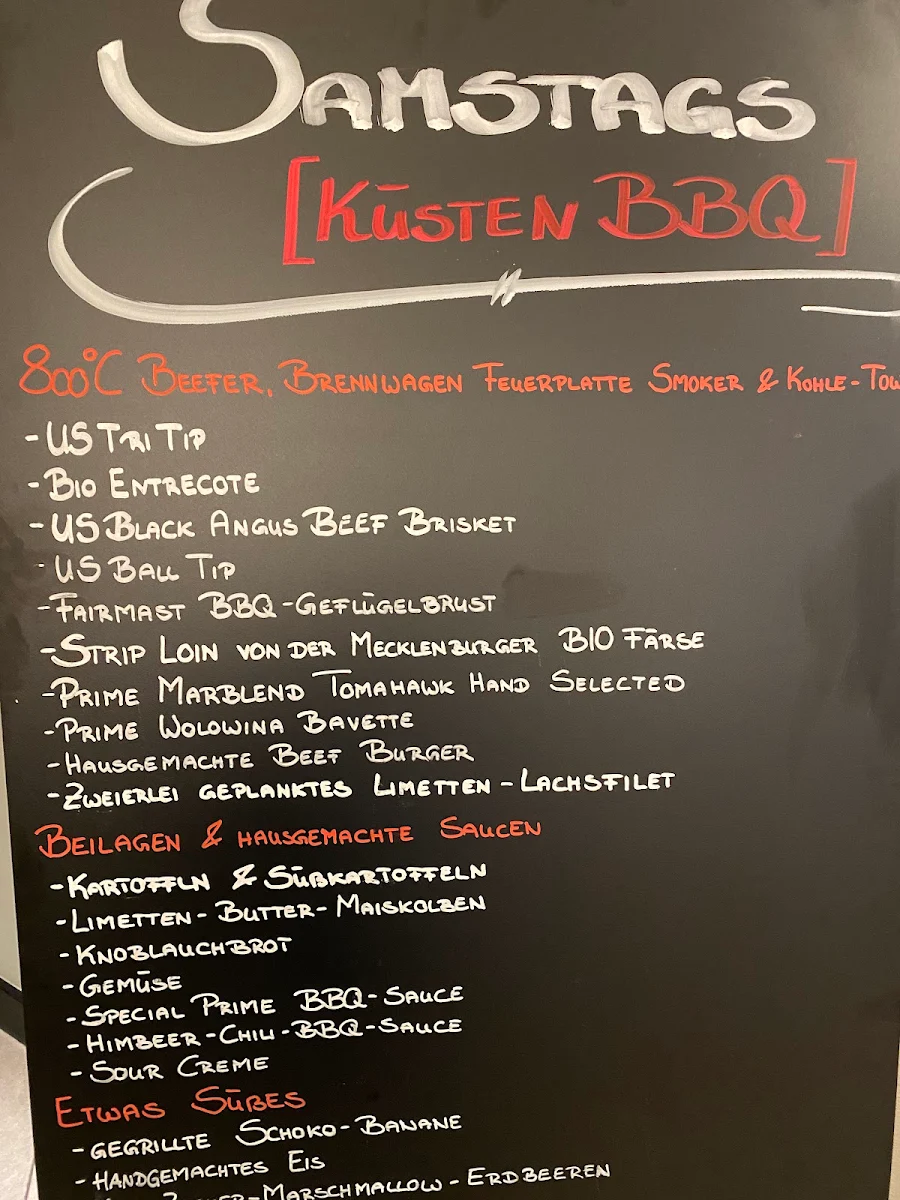 SAMSTAGS
[KÜSTEN BBQ]
800°C BEEFER, BRENNWAGEN FEUERPLATTE SMOKER & KOHLE-TOW
- US TRI TIP
- BIO ENTRECOTE
- US BLACK ANGUS BEEF BRISKET
- US BALL TIP
- FAIRMAST BBQ-GEFLÜGELBRUST
- STRIP LOIN VON DER MECKLENBURGER BIO FÄRSE
- PRIME MARBLEND TOMAHAWK HAND SELECTED
- PRIME WOLOWINA BAVETTE
- HAUSGEMACHTE BEEF BURGER
- ZWEIERLEI GEPLANKTES LIMETTEN-LACHSFILET
BEILAGEN & HAUSGEMACHTE SAUCEN
- KARTOFFLN & SÜßKARTOFFELN
- LIMETTEN-BUTTER-MAISKOLBEN
- KNOBLAUCHBROT
- GEMÜSE
- SPECIAL PRIME BBQ-SAUCE
- HIMBEER-CHILI-BBQ-SAUCE
- SOUR CREME
ETWAS SÜßES
- GEGRILLTE SCHOKO-BANANE
- HANDGEMACHTES EIS
MARSCHMALLOW-ERDBEEREN